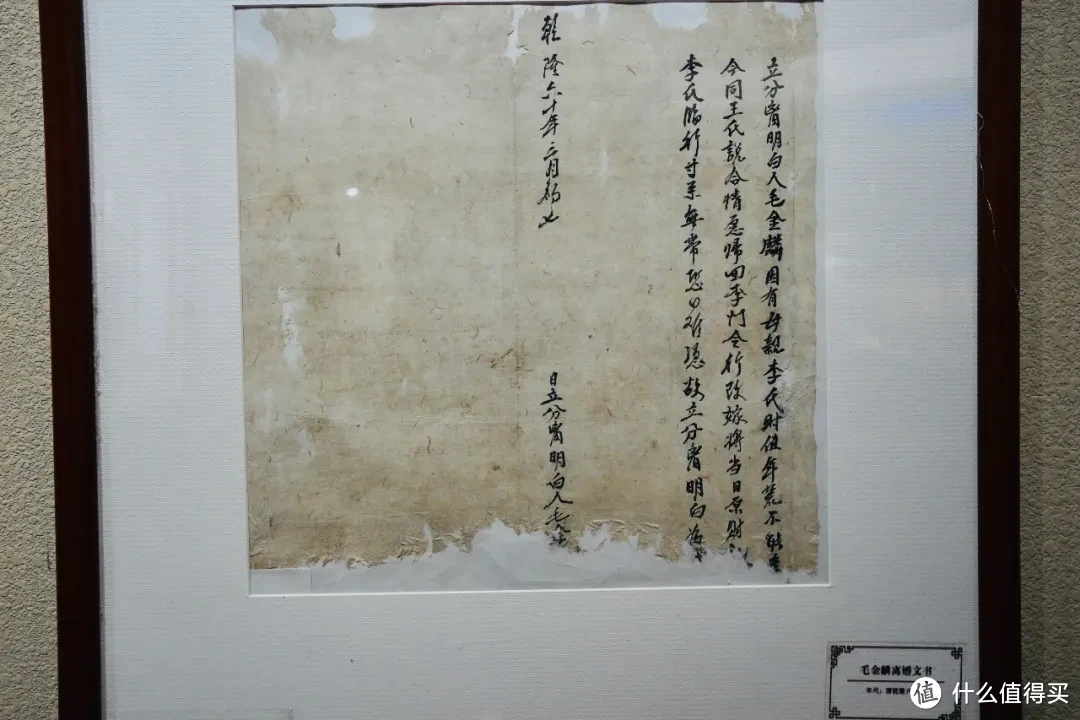 立分肴明白人毛金麟因有母親李氏財值年荒不能
今同王氏說合情愿歸回李門令行改嫁將当日原財
李氏臨行寸系無帶恐口难憑故立分肴明白為
乾隆六十年二月初七
日立分肴明白人毛金
毛金麟离婚文书
年代：清乾隆
值 什么值得买